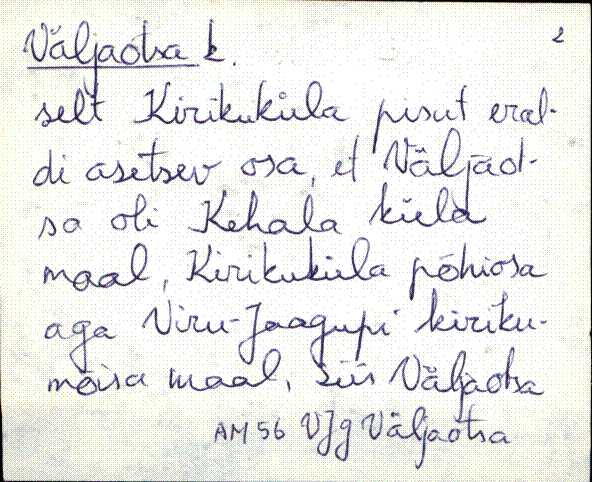 Väljaotsa k.
2
selt Kirikuküla pisut eral-
di asetsev osa, et Väljaot-
sa oli Kehala küla
maal, Kirikuküla põhiosa
aga Viru-Jaagupi kiriku-
mõisa maal, siis Väljaotsa
AM 56 VJg Väljaotsa